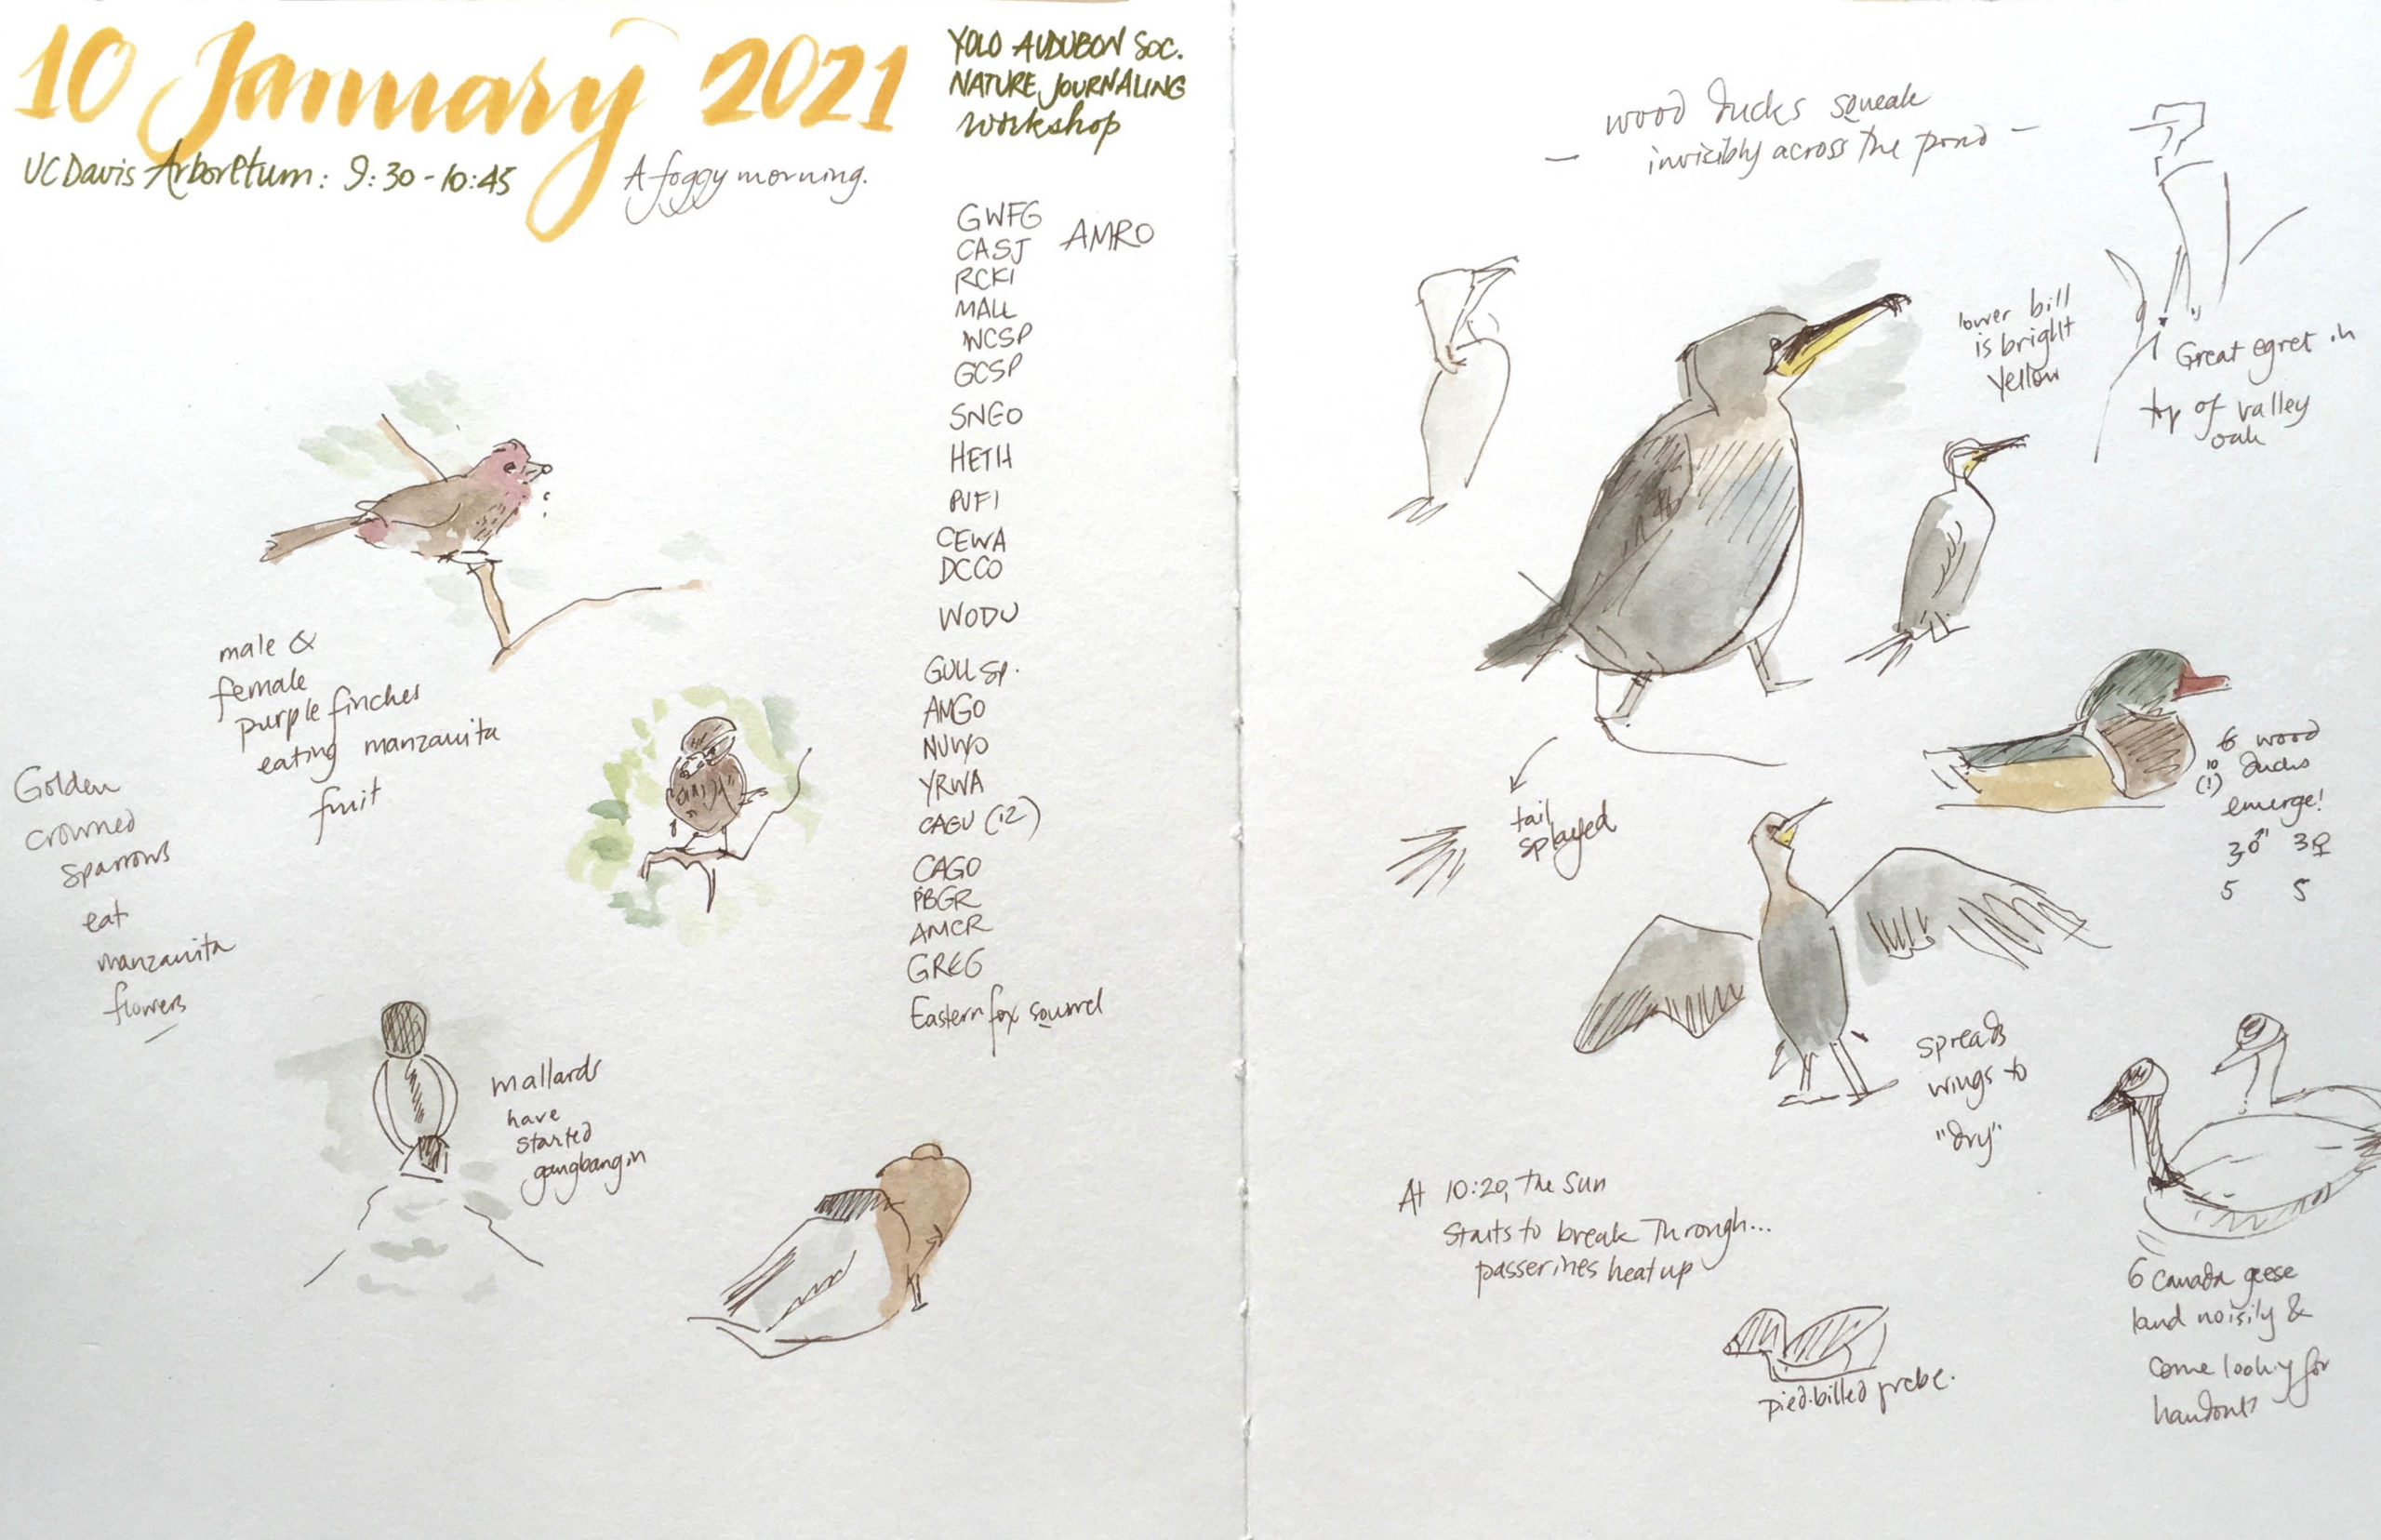 10 January 2021
UC Davis Arboretum: 9:30-10:45
A foggy morning.
YOLO AUDUBON SOC.
NATURE JOURNALING
Workshop
GWFG
CASJ
AMRO
RCKI
MALL
WCSP
GCSP
SNEG
HETH
PUFI
CEWA
DCCO
WODU
GULL SP.
AMGO
NUWO
YRWA
CAGU (12)
CAGO
PBGR
AMCR
GREG
Eastern fox squirrel
male &
female
purple finches
eating manzanita
fruit
Golden
crowned
sparrows
eat
manzanita
flowers
mallards
have
started
gangbangin
— wood ducks squeak
invizibly across the pond —
lower bill
is bright
yellow
Great egret in
top of valley
oak
tail
splayed
6 wood
10 ducks
(!) emerge!
3♂ 3♀
5 5
spreads
wings to
"dry"
At 10:20, the sun
starts to break through...
passerines heat up
pied-billed grebe.
6 Canada geese
land noisily &
come looking for
handouts